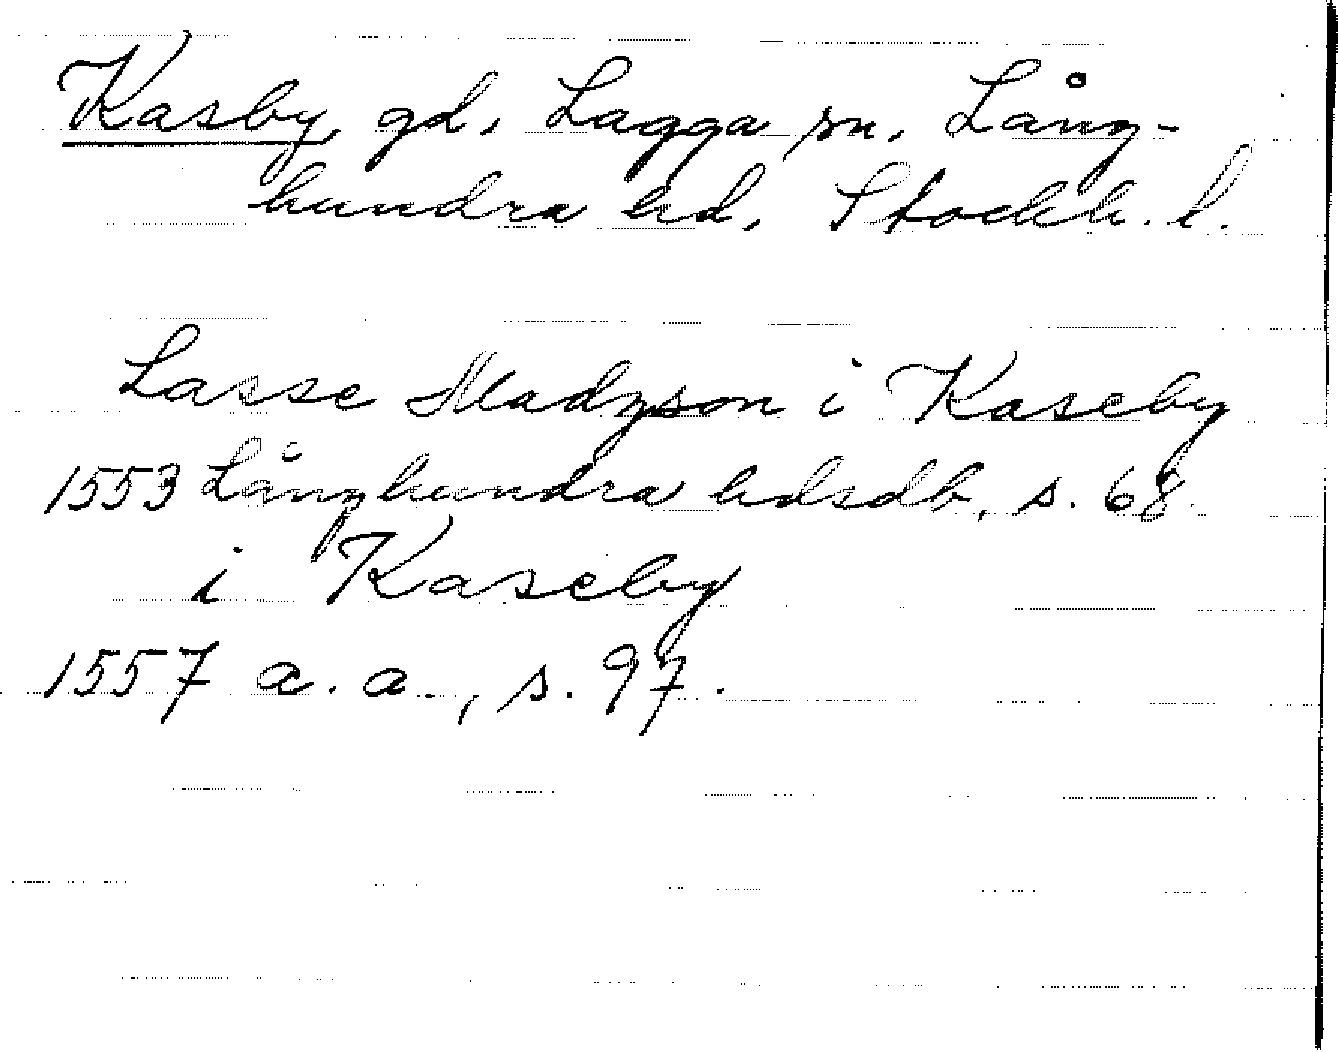 Kasby, gd, Lagga sn, Lång-
hundra hd, Stockh. l.
Lasse Madzson i Kaseby
1553 Långhundra hdsdb, s. 68.
i Kaseby
1557 a. a., s. 97.